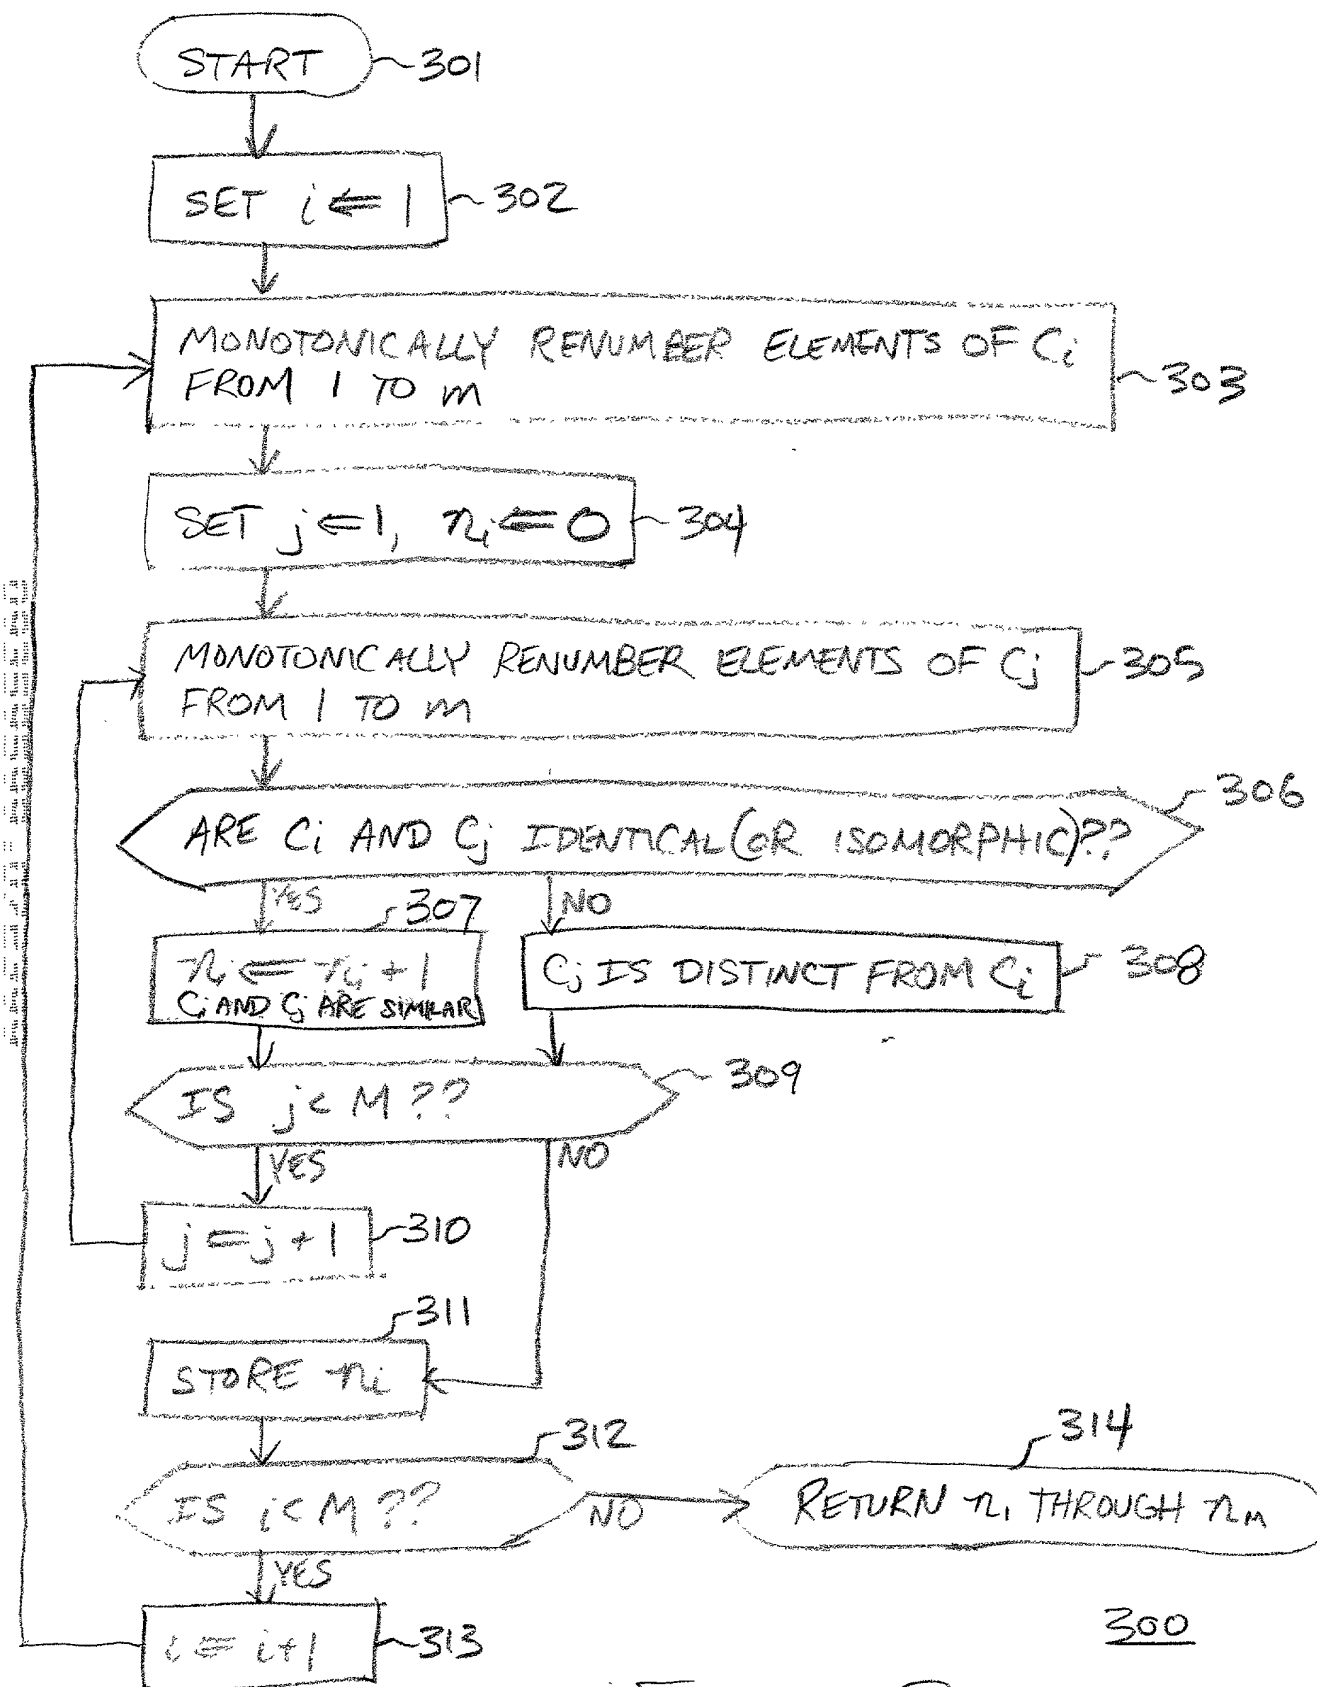 START 301
SET i ⇐ 1 302
MONOTONICALLY RENUMBER ELEMENTS OF Ci
FROM 1 TO m 303
SET j ⇐ 1, ni ⇐ 0 304
MONOTONICALLY RENUMBER ELEMENTS OF Cj
FROM 1 TO m 305
306
ARE Ci AND Cj IDENTICAL (OR ISOMORPHIC)??
YES NO
307
ni ⇐ ni + 1
Ci AND Cj ARE SIMILAR
Cj IS DISTINCT FROM Ci 308
IS j < M ?? 309
YES NO
j ⇐ j + 1 310
311
STORE ni
312
IS i < M ??
NO
YES
314
RETURN n1 THROUGH nM
i ⇐ i+1 313
300